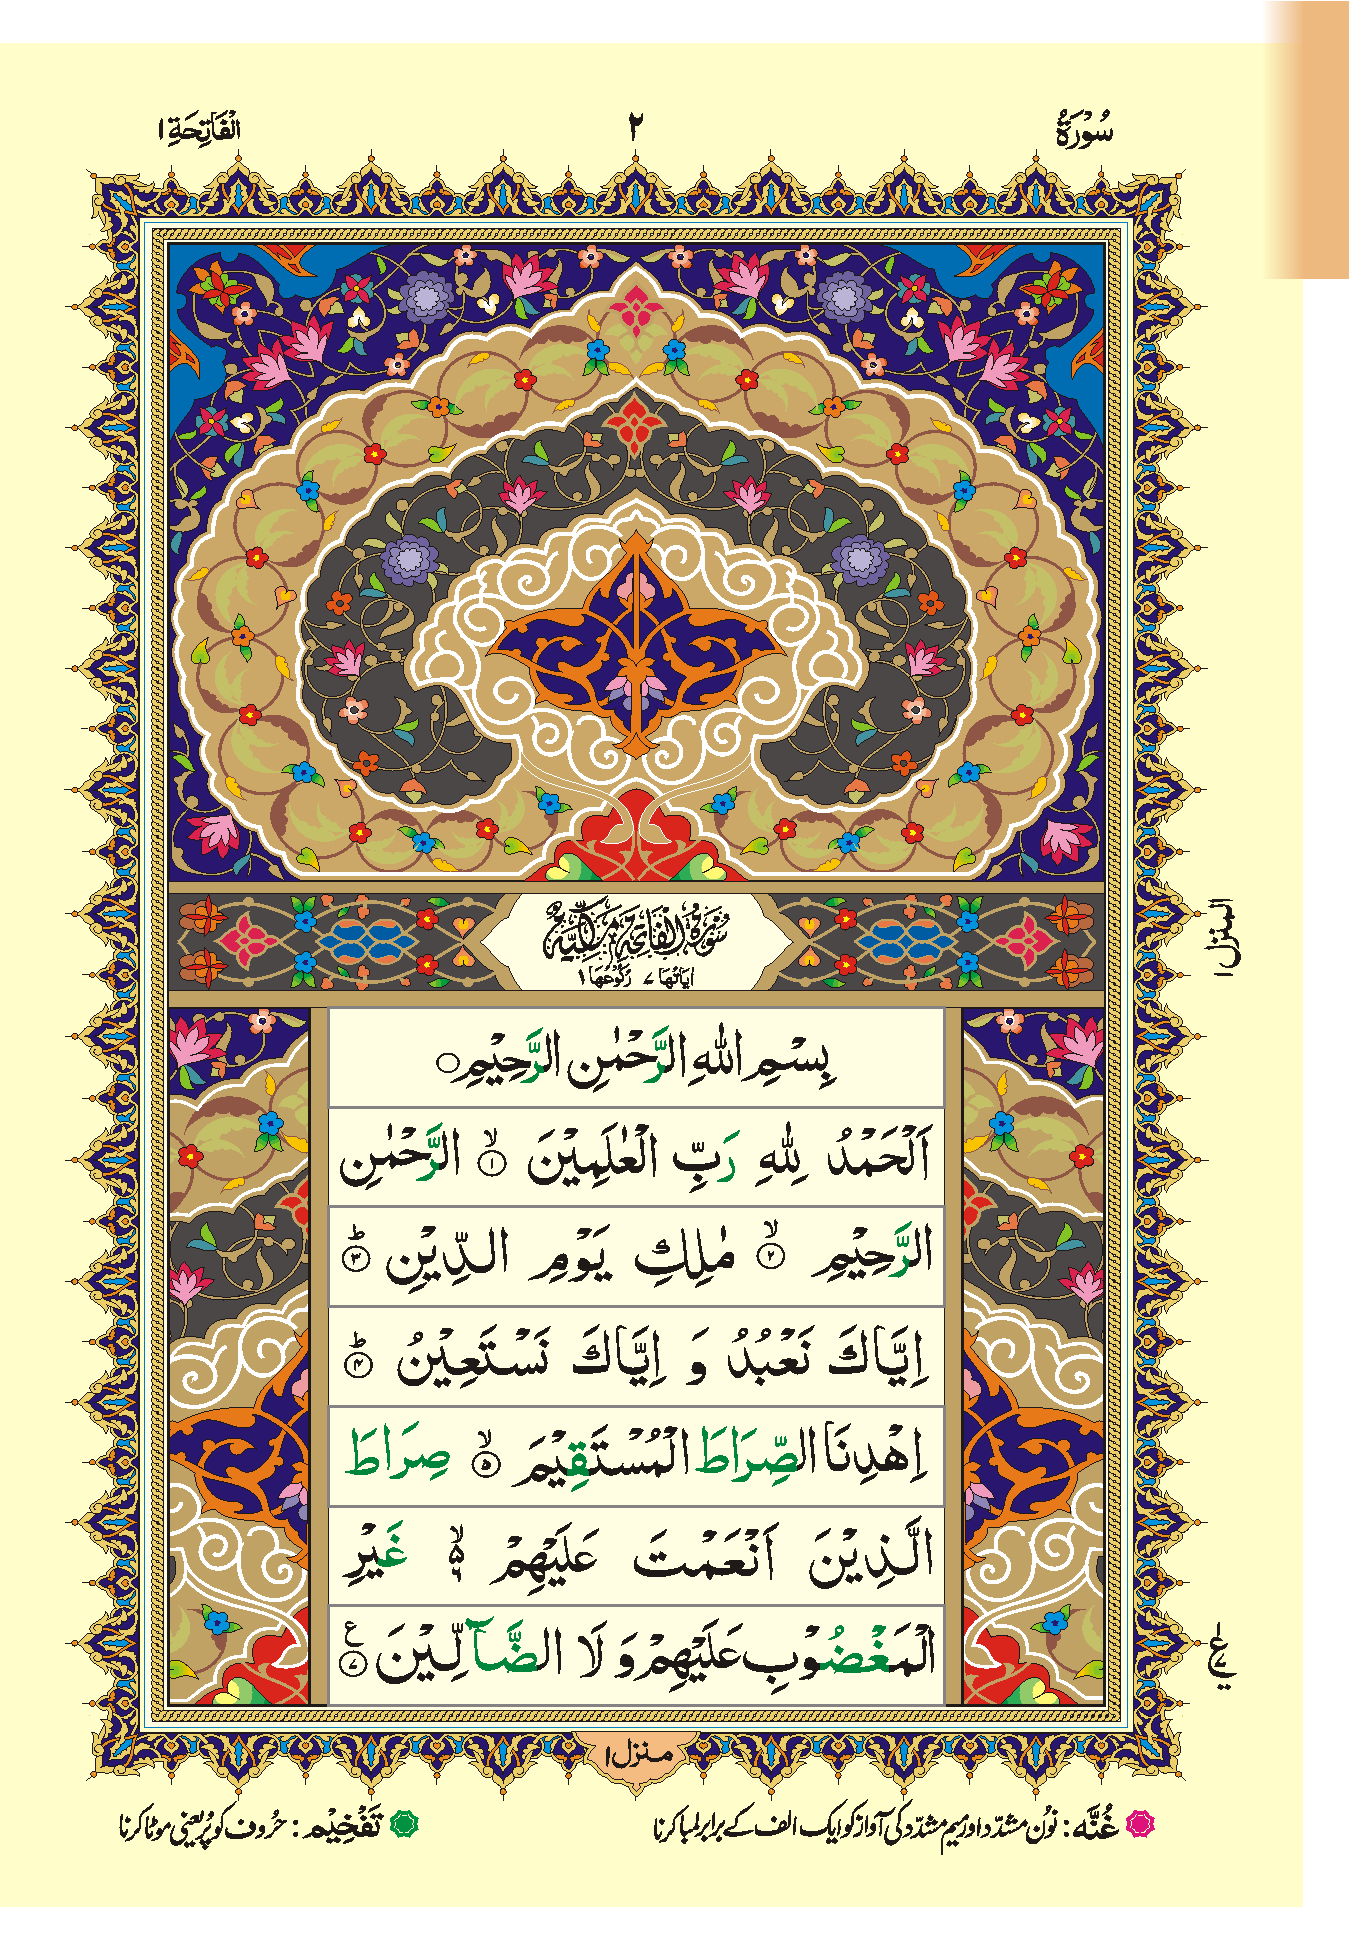 سُوْرَةُ
٢
اَلْفَاتِحَةِ ١
سُوْرَةُ الْفَاتِحَةِ مَكِّيَّةٌ
اٰیَاتُهَا ٧ رُكُوْعُهَا ١
بِسْمِ اللّٰهِ الرَّحْمٰنِ الرَّحِیْمِ ○
اَلْحَمْدُ لِلّٰهِ رَبِّ الْعٰلَمِیْنَ ۙ﴿١﴾ الرَّحْمٰنِ
الرَّحِیْمِ ۙ﴿٢﴾ مٰلِكِ یَوْمِ الدِّیْنِ ؕ﴿٣﴾
اِیَّاكَ نَعْبُدُ وَ اِیَّاكَ نَسْتَعِیْنُ ؕ﴿٤﴾
اِهْدِنَا الصِّرَاطَ الْمُسْتَقِیْمَ ۙ﴿٥﴾ صِرَاطَ
الَّذِیْنَ اَنْعَمْتَ عَلَیْهِمْ ۙ۵ ٦ غَیْرِ
الْمَغْضُوْبِ عَلَیْهِمْ وَ لَا الضَّآلِّیْنَ ﴿٧﴾ ع
المنزل ١
ع ١ ٧
منزل ١
غُنَّه : نُون مشدّد اور میم مشدّد کی آواز کو ایک الف کے برابر لمبا کرنا
تَفْخِیْم : حرُوف کو پُر یعنی موٹا کرنا